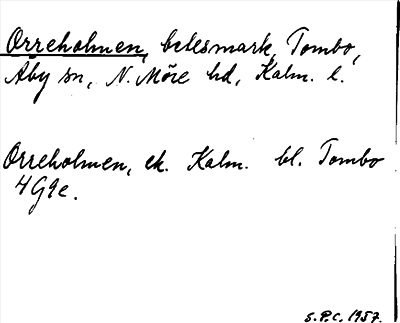 Orreholmen, betesmark, Tombo,
Åby sn, N. Möre hd, Kalm. l.
Orreholmen, ek. Kalm. bl. Tombo
4G9e.
S.P.C. 1957.